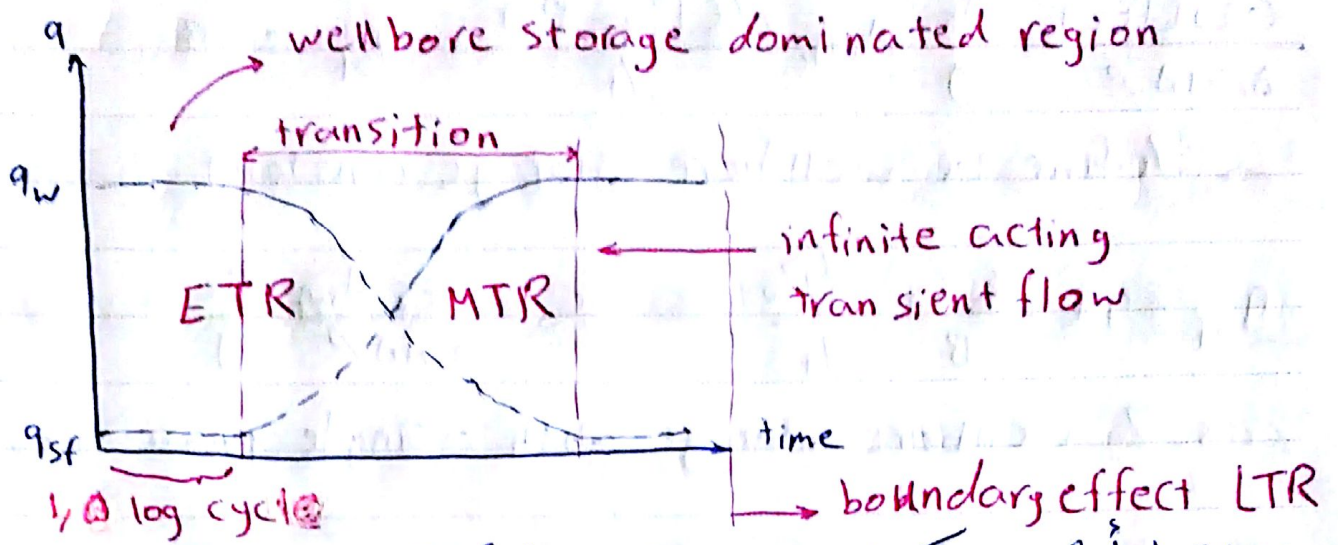 q
wellbore storage dominated region
transition
qw
infinite acting
transient flow
ETR
MTR
qsf
time
log cycle
boundary effect LTR